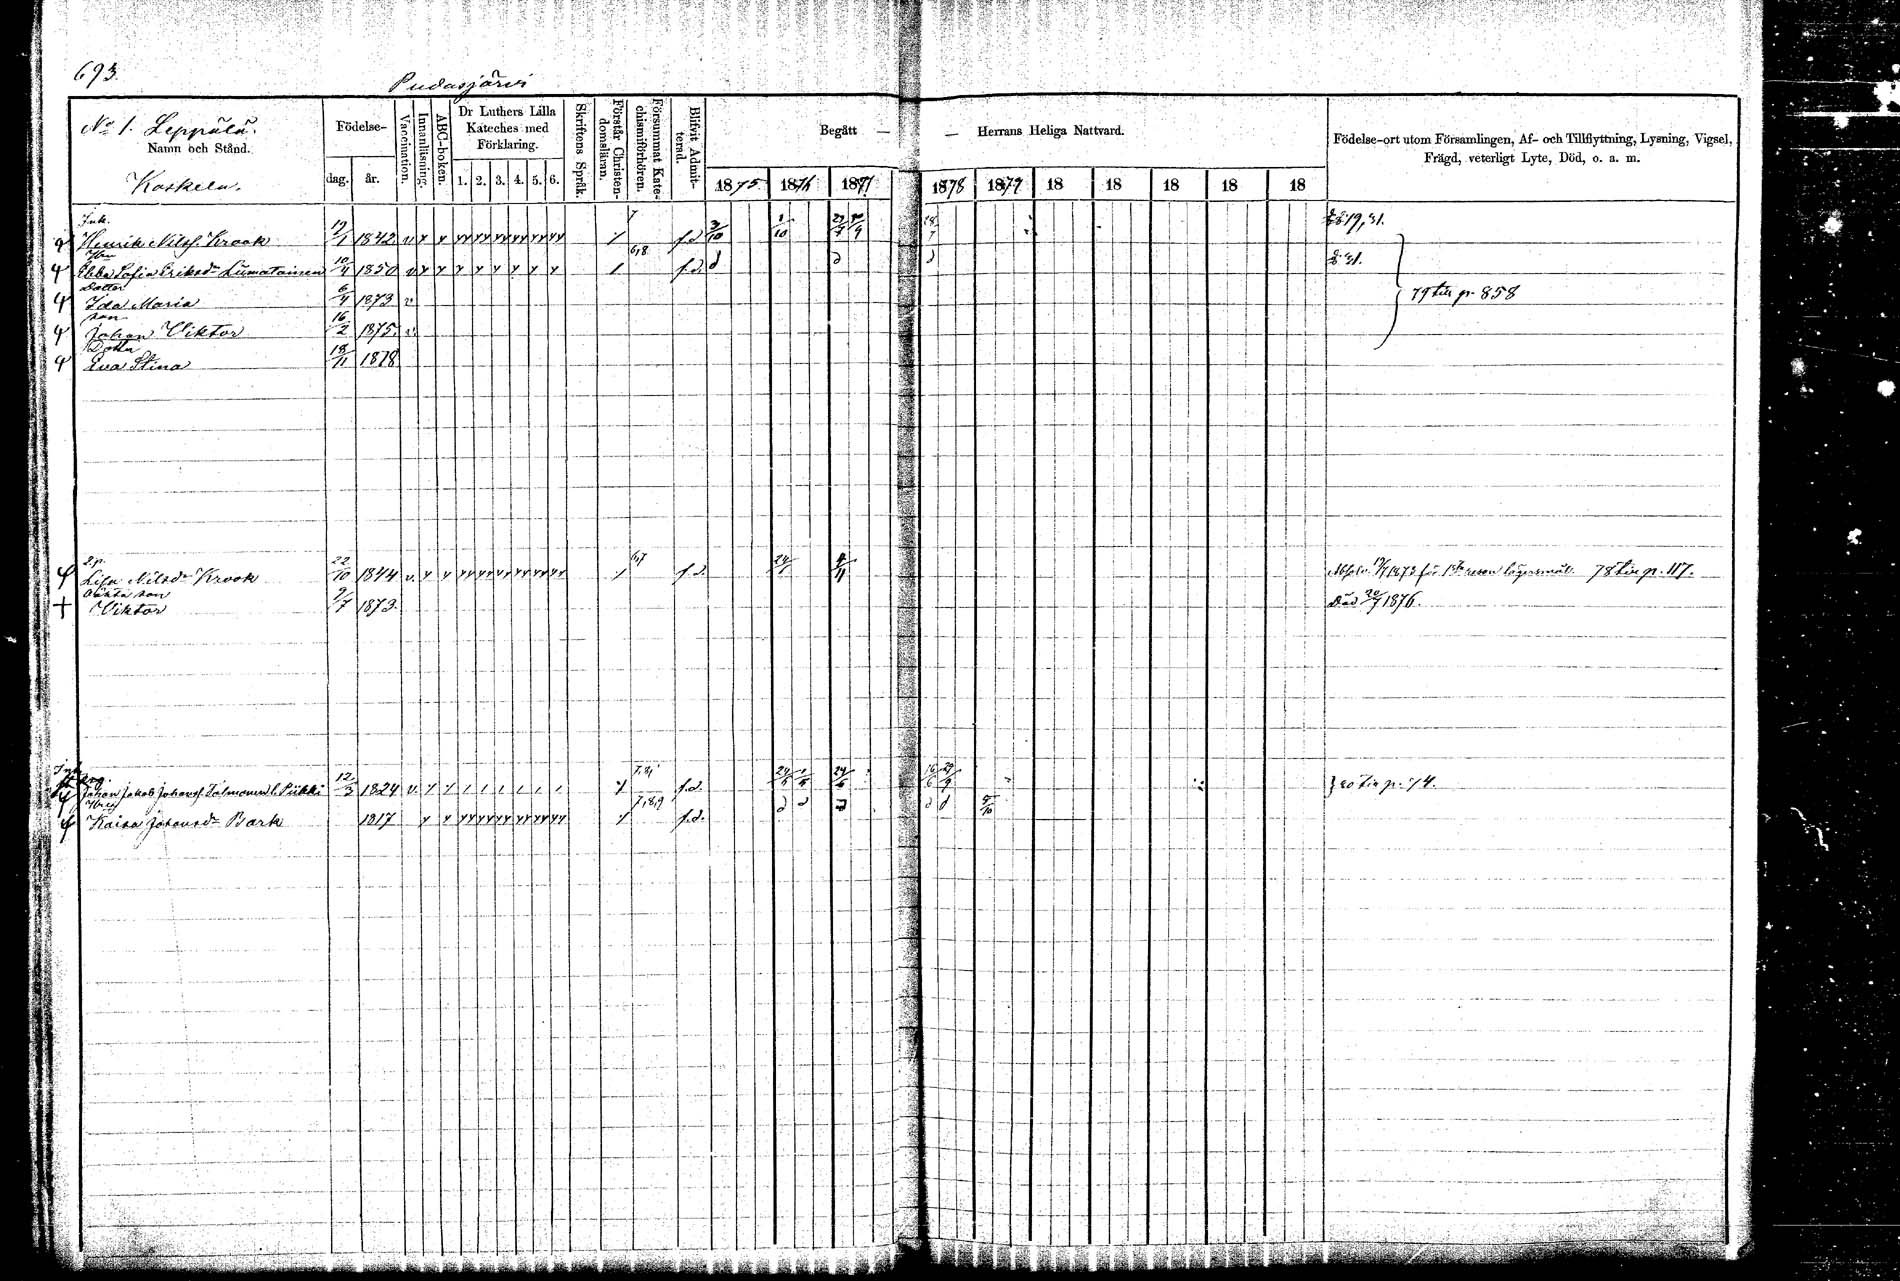 693.
Pudasjärvi
No 1. Leppälä.
Namn och Stånd.
Koskela.
Födelse-
dag. år.
Vaccination.
Innanläsning.
ABC-boken.
Dr Luthers Lilla
Kateches med
Förklaring.
1. 2. 3. 4. 5. 6.
Skriftens Språk.
Förstår Christen-
domsläran.
Försummat Kate-
chismiförhören.
Blifvit Admit-
terad.
Begått — — Herrans Heliga Nattvard.
1875 1876 1877 1878 1879 18 18 18 18 18
Födelse-ort utom Församlingen, Af- och Tillflyttning, Lysning, Vigsel,
Frägd, veterligt Lyte, Död, o. a. m.
Inh.
Henrik Nilsf. Krook 12/1 1842 v 7 f.d. 3/10 1/10
Hu
Ebba Sofia Eriksd. Lumatainen 10/4 1850 v 6,8 f.d. d d d
Dotter
Ida Maria 6/4 1873 v 79 till p. 858
son
Johan Viktor 16/2 1875 v.
Dotter
Eva Stina 18/11 1878
Lisa Nilsd. Krook 22/10 1844 v. 6,7 f.d. 78 till p. 117.
oäkta son
Viktor 9/7 1873. Död 20/7 1876.
Inh.
Johan Jakob Johansf. Talmonen l. Piikki 12/3 1824 v. f.d. 80 till p. 74.
Hu
Kaisa Johansd. Bark 1817 7,8,9 f.d. d d d d d 5/10